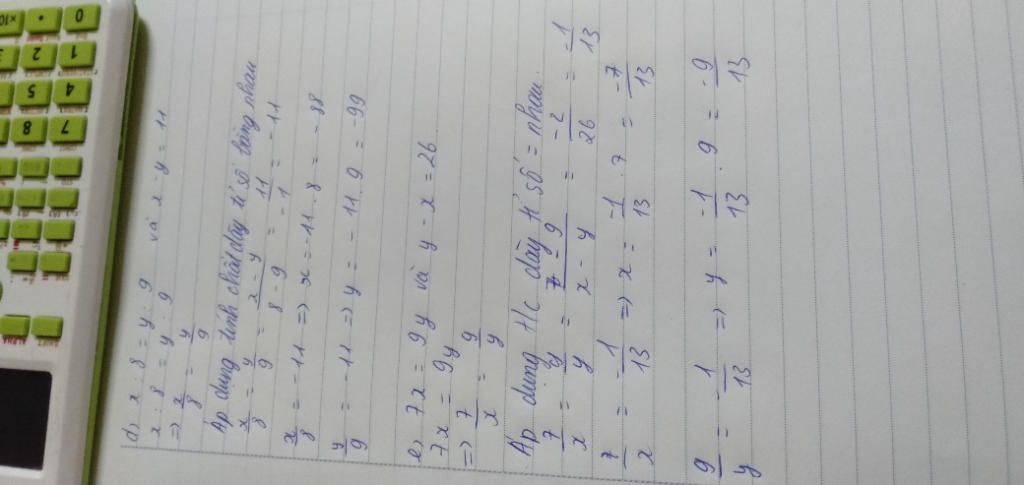 d) x : 8 = y : 9 và x - y = 11
x : 8 = y : 9
=> x/8 = y/9
Áp dụng tính chất dãy tỉ số bằng nhau
x/8 = y/9 = x - y/8 - 9 = 11/-1 = -11
x/8 = -11 => x = -11 . 8 = -88
y/9 = -11 => y = -11 . 9 = -99
e) 7x = 9y và y - x = 26
7x = 9y
=> 7/x = 9/y
Áp dụng t/c dãy tỉ số = nhau.
7/x = 9/y = 7 - 9/x - y = -2/26 = -1/13
7/x = -1/13 => x = -1/13 . 7 = -7/13
9/y = -1/13 => y = -1/13 . 9 = -9/13
ALPHA
SHIFT
7
8
4
5
1
2
0
•
×10